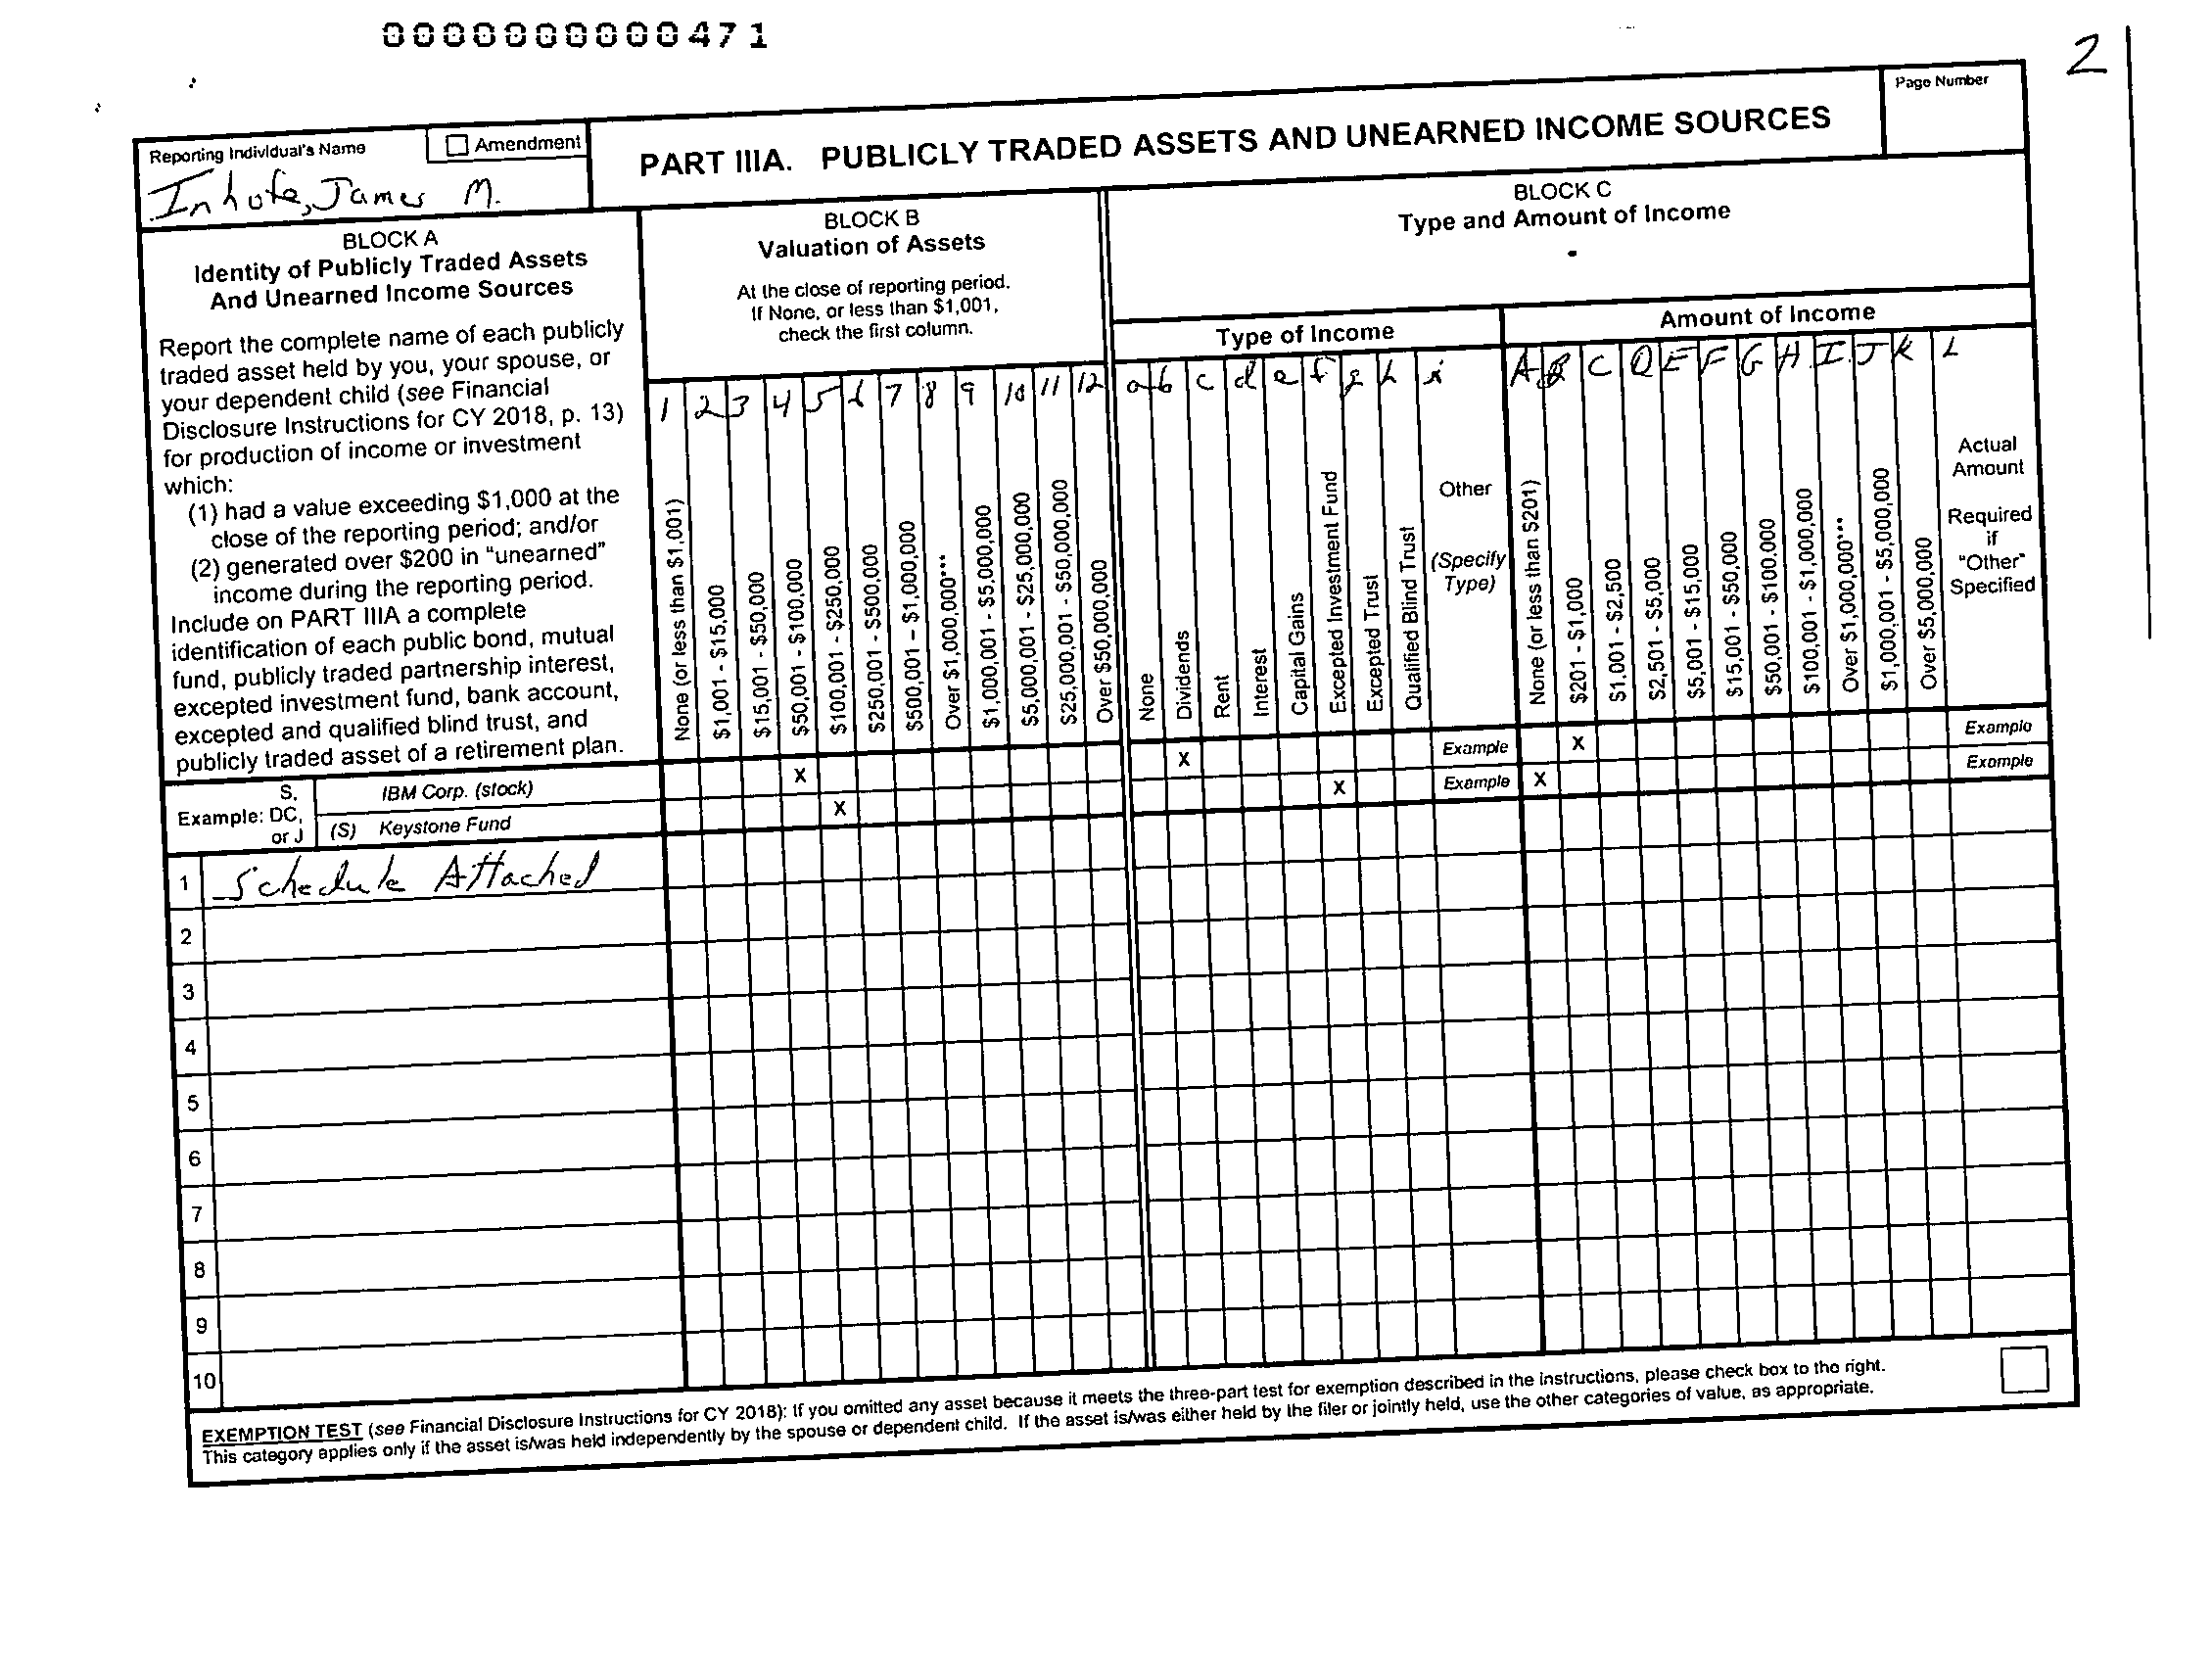 000000000471
2
Page Number
Reporting Individual's Name
Amendment
Inhofe, James M.
PART IIIA. PUBLICLY TRADED ASSETS AND UNEARNED INCOME SOURCES
BLOCK A
Identity of Publicly Traded Assets
And Unearned Income Sources
Report the complete name of each publicly
traded asset held by you, your spouse, or
your dependent child (see Financial
Disclosure Instructions for CY 2018, p. 13)
for production of income or investment
which:
(1) had a value exceeding $1,000 at the
close of the reporting period; and/or
(2) generated over $200 in "unearned"
income during the reporting period.
Include on PART IIIA a complete
identification of each public bond, mutual
fund, publicly traded partnership interest,
excepted investment fund, bank account,
excepted and qualified blind trust, and
publicly traded asset of a retirement plan.
BLOCK B
Valuation of Assets
At the close of reporting period.
If None, or less than $1,001,
check the first column.
1 2 3 4 5 6 7 8 9 10 11 12
None (or less than $1,001)
$1,001 - $15,000
$15,001 - $50,000
$50,001 - $100,000
$100,001 - $250,000
$250,001 - $500,000
$500,001 - $1,000,000
Over $1,000,000***
$1,000,001 - $5,000,000
$5,000,001 - $25,000,000
$25,000,001 - $50,000,000
Over $50,000,000
BLOCK C
Type and Amount of Income
Type of Income
a b c d e f g h i
None
Dividends
Rent
Interest
Capital Gains
Excepted Investment Fund
Excepted Trust
Qualified Blind Trust
Other
(Specify
Type)
Amount of Income
A B C D E F G H I J K L
None (or less than $201)
$201 - $1,000
$1,001 - $2,500
$2,501 - $5,000
$5,001 - $15,000
$15,001 - $50,000
$50,001 - $100,000
$100,001 - $1,000,000
Over $1,000,000***
$1,000,001 - $5,000,000
Over $5,000,000
Actual
Amount
Required
if
"Other"
Specified
Example: S, DC, or J
IBM Corp. (stock) X X Example X Example
(S) Keystone Fund X X Example X Example
1 Schedule Attached
2
3
4
5
6
7
8
9
10
EXEMPTION TEST (see Financial Disclosure Instructions for CY 2018): If you omitted any asset because it meets the three-part test for exemption described in the instructions, please check box to the right.
This category applies only if the asset is/was held independently by the spouse or dependent child. If the asset is/was either held by the filer or jointly held, use the other categories of value, as appropriate.